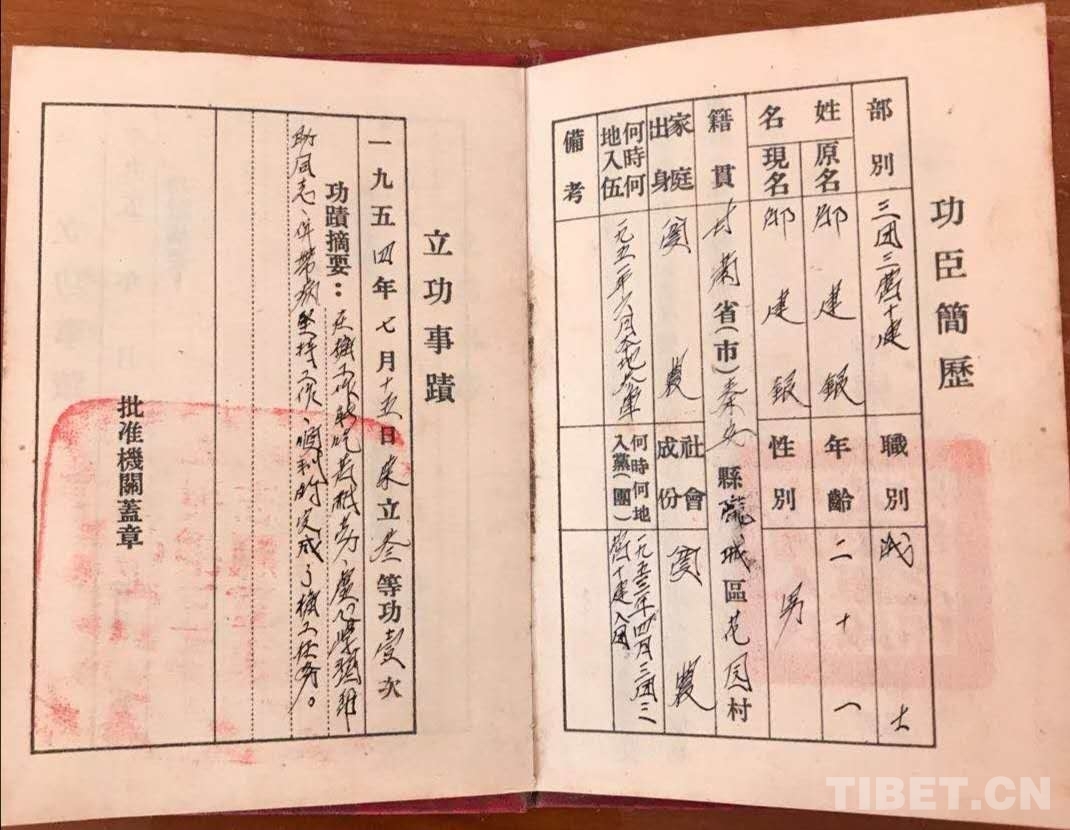 功臣簡歷
部別 三团三营十連 職別 战士
姓名 原名 邸建银 年齡 二十一
現名 邸建银 性別 男
籍貫 甘肃省(市)秦安縣隴城區花园村
家庭出身 貧農 社會成份 貧農
何時何地入伍 一九五一年六月本地入軍 何時何地入黨(團) 一九五三年四月三团三营十連入团
備考
立功事蹟
一九五四年七月十五日 立叁等功壹次
功蹟摘要：在機工作 吃苦耐劳、虚心学習、
助同志、并帶病坚持工作、順利的完成了機工任务。
批准機關蓋章
TIBET.CN